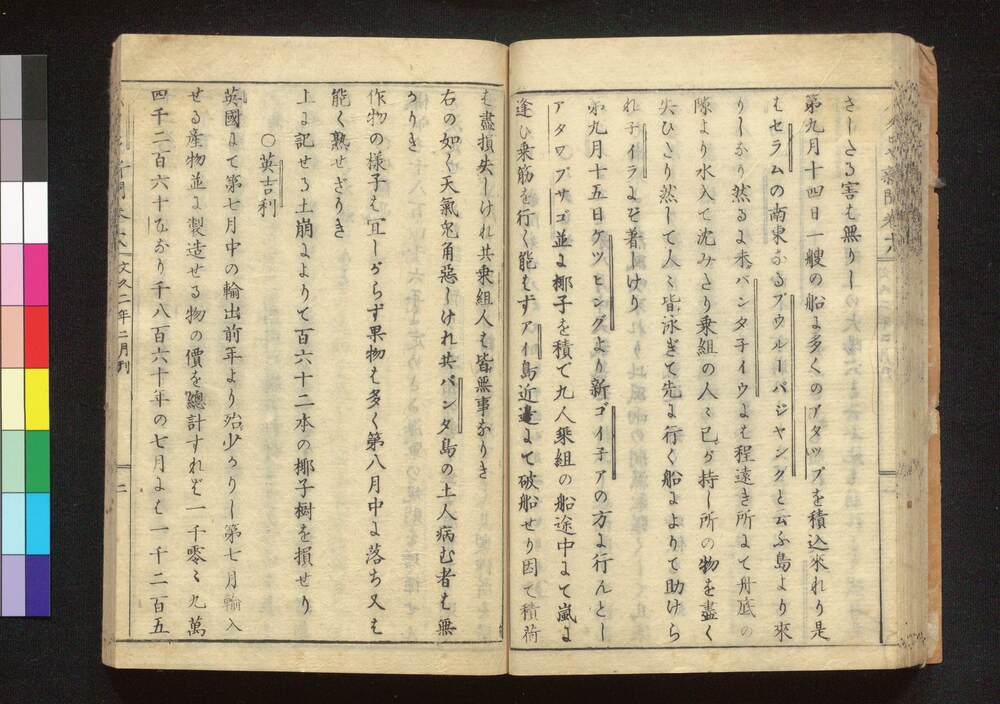 さしたる害も無りし
第九月十四日一艘の船に多くのアタツプを積込來れり是
はセラムの南東なるブウルーパジヤングと云ふ島より來
りしなり然るに未バンタ子イウよは程遠き所にて舟底の
隙より水入て沈みたり乗組の人々已が持し所の物を盡く
失ひたり然して人々皆泳ぎて先に行く船によりて助けら
れ子イラに至着しけり
第九月十五日ケツヒングより新ゴイ子アの方に行んとし
アタワプサゴ並に椰子を積て九人乗組の船途中にて嵐に
逢ひ乗筋を行く能はずアイ島近邊にて破船せり因て積荷
は盡損失しけれ共乗組人は皆無事なりき
右の如く天氣兎角惡しけれ共バンタ島の土人病む者は無
かりき
作物の樣子も宜しからず果物は多く第八月中に落ち又は
能く熟せざりき
上に記せる土崩によりて百六十二本の椰子樹を損せり
○英吉利
英國にて第七月中の輸出前年より殆少かりし第七月輸入
せる産物並に製造せる物の價を總計すれば一千零々九萬
四千二百六十なり千八百六十年の七月には一千二百五
文久二年二月刋
二